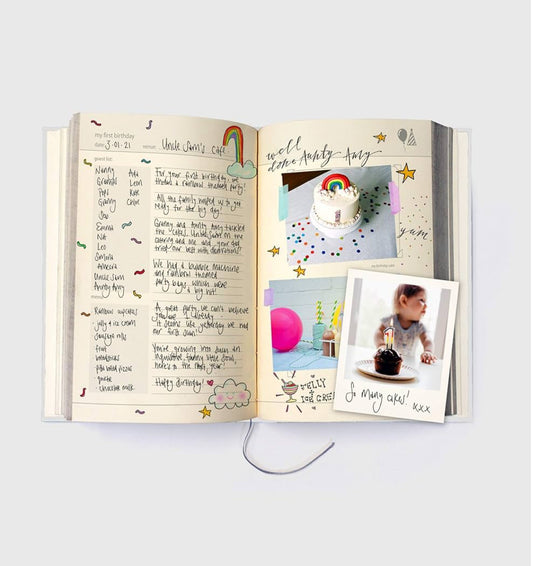 my first birthday
date 3·01·21 venue: Uncle Sam's Cafe.
guest list:
Nanny Ada
Grandad Leon
Papi
Granny
Joo
Emma
Nat
Leo
Uncle Sam
Aunty Amy
For your first birthday, we
threw a rainbow themed party!
All the family helped us get
ready for the big day!
Granny and Aunty Amy tackled
the cake! Uncle Sam did the
catering and me and your dad
tried our best with decorations!!
We had a bubble machine
and rainbow themed
party bags which were
a big hit!
menu:
Rainbow cupcakes
- jelly & ice cream
- sausage rolls
fruit
breadsticks
pitta bread pizzas
- chocolate milk
A great party, we can't believe
you're 1 already -
it seems like yesterday we had
our first scan!
You're growing into such an
inquisitive, funny little soul,
here's to the next year!
Happy Birthday!
well
done Aunty Amy
yum
my birthday cake
JELLY
+
ICE CREAM
So many cakes!
xxx